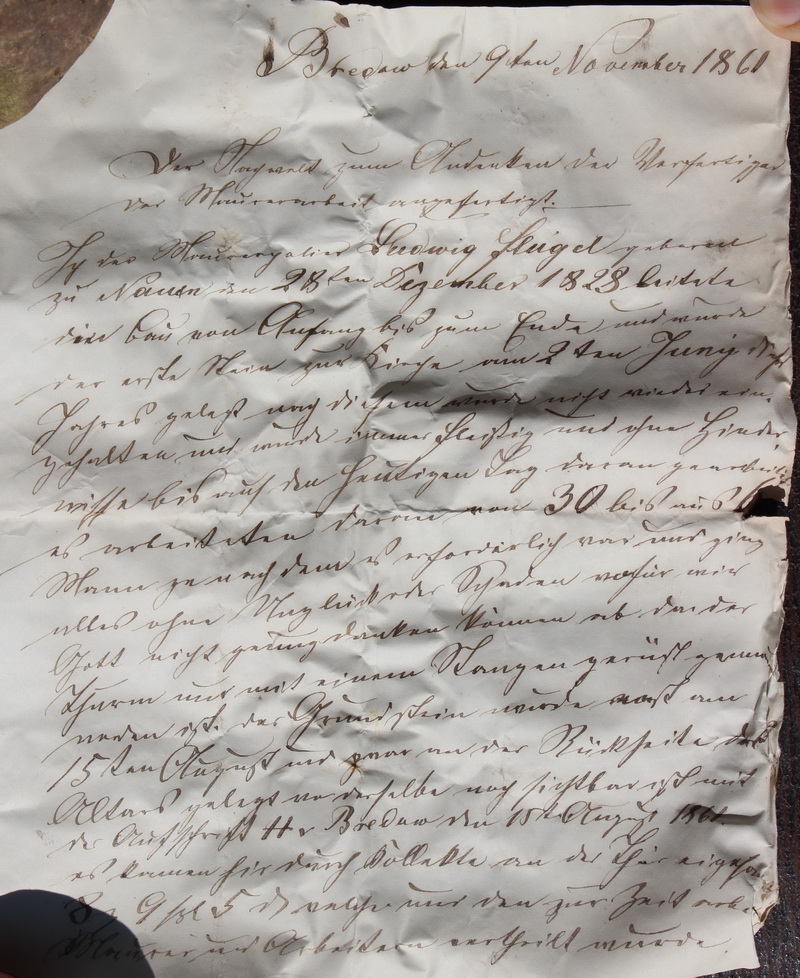 Bredow den 9ten November 1861
Der Nachwelt zum Andenken der Verfertiger
der Maurerarbeit angefertigt.
Ich der Maurerpolier Ludwig Flügel geboren
zu Nauen den 28ten Dezember 1828 leitete
den Bau von Anfang bis zum Ende und wurde
der erste Stein zur Kirche am 2ten Juny
Jahres gelegt nach diesem wurde nicht wieder ein-
gehalten und wurde immer fleißig und ohne Hinder-
nisse bis auf den heutigen Tag daran gearbeitet
es arbeiteten daran von 30 bis aus
Mann je nach dem es erforderlich war und ging
alles ohne Unglück oder Schaden wofür wir
Gott nicht genug danken können ob da der
Thurm nur mit einem Stangen gerüst
worden ist. der Grundstein wurde erst am
15ten August und zwar an der Rückseite des
Altars gelegt wo derselbe noch sichtbar ist mit
der Aufschrift H v Bredow den 15t August 1861
es kamen hir durch Kollekte an der Thür
8 9 5 welche uns den zur Zeit
Maurer und Arbeitern vertheilt wurde.